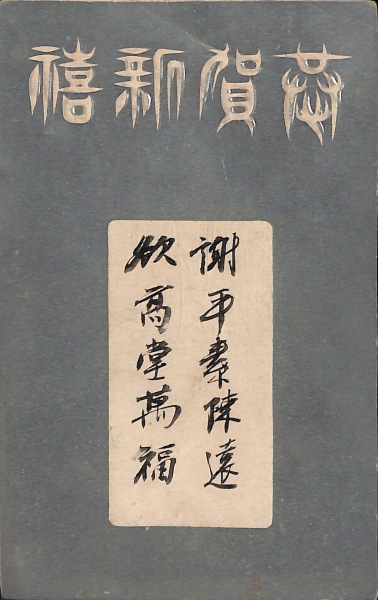 恭賀新禧
謝平素陳遠
欲高堂萬福